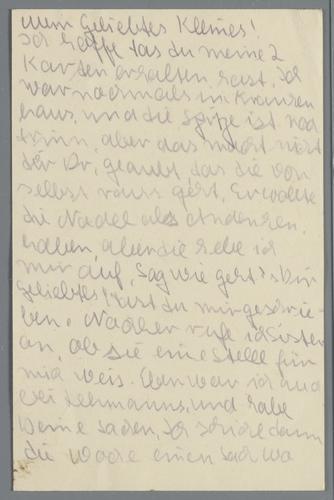 mein Geliebtes Kleines!
Ich hoffe das du meine 2
Karten erhalten hast. Ich
war nochmals im Kranken
haus, und die Spitze ist noch
trinn, aber das macht nicht
der Dr, glaubt das die von
selbst raus geht, Er wollte
die Nadel als Andenken,
haben, aber die hebe ich
mir auf, Sag wie geht's dir
geliebtes! Hast du mir geschrie-
ben. Nachher rufe ich
an, ob sie eine Stelle für
mich weis. Eben war ich
bei Lehmanns, und habe
keine Sachen, Ich schicke dann
die Woche einen